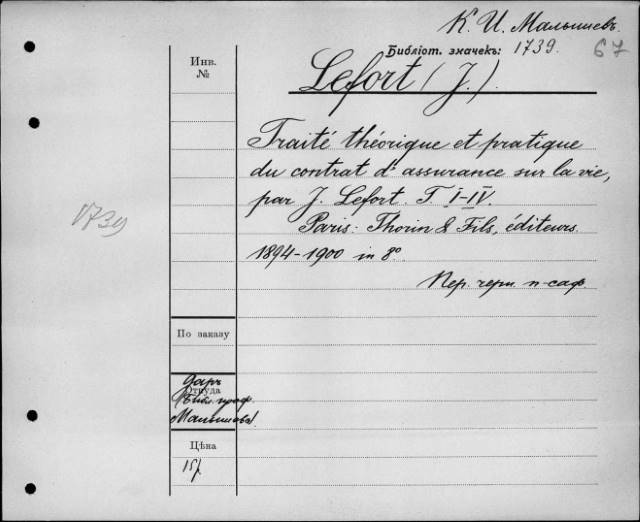 К. И. Малышевъ.
Библіот. значекъ: 1739.
67
Инв.
№
Lefort (J.).
Traité théorique et pratique
du contrat d'assurance sur la vie,
par J. Lefort. T. I-IV.
1739
Paris: Thorin & Fils, éditeurs.
1894-1900 in 8º
Пер. черн. п-саф.
По заказу
даръ
Откуда
(Библ. проф.
Малышева).
Цѣна
15 р.